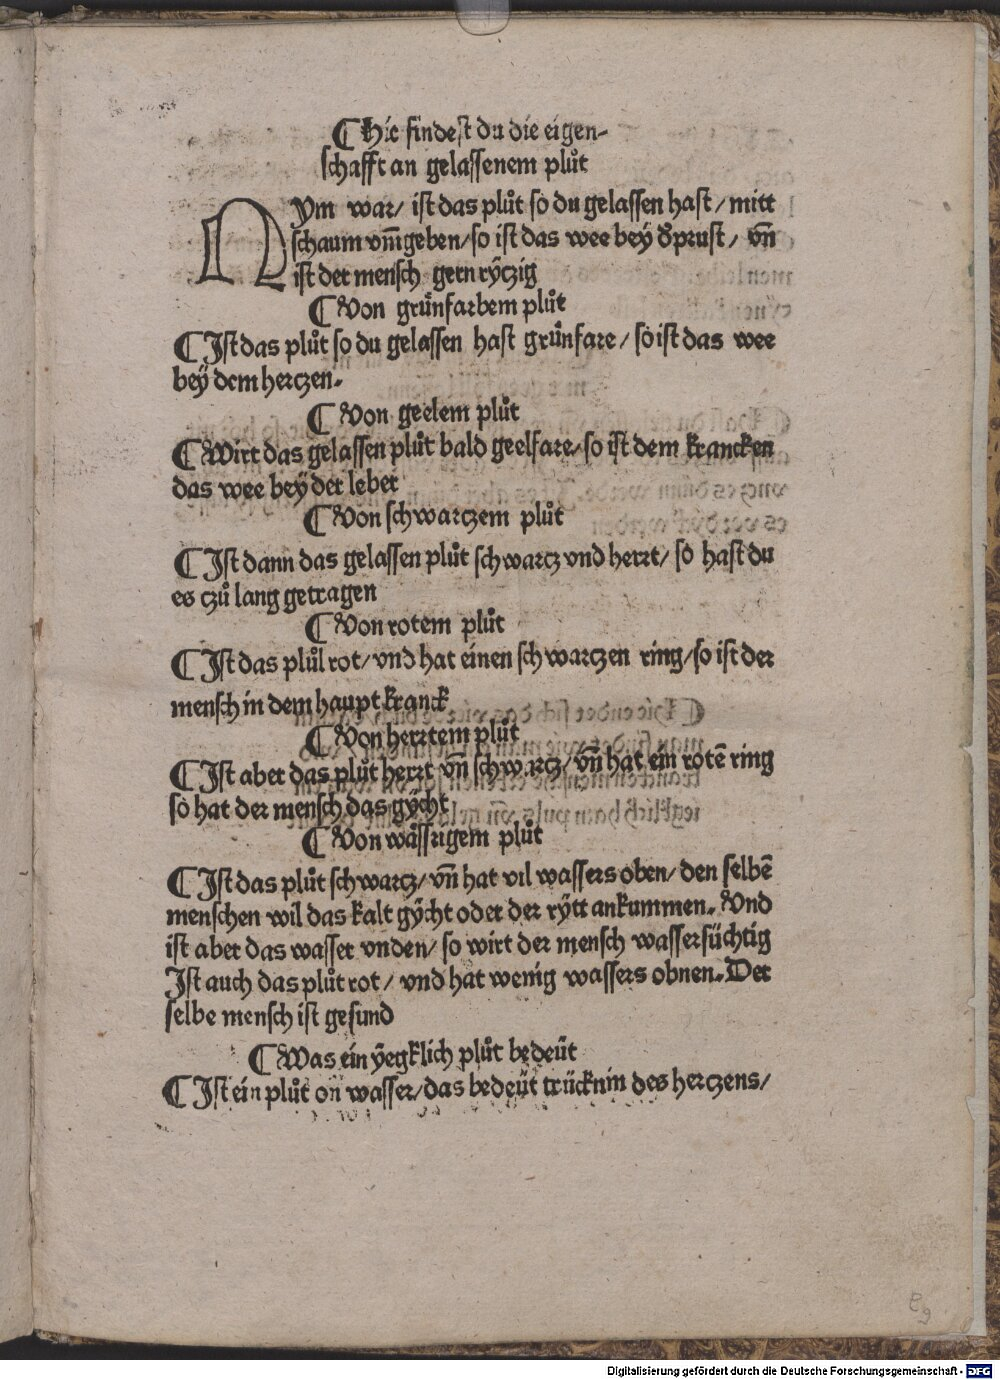 ¶ Hie findest du die eigen-
schafft an gelassenem plůt
NYm war/ ist das plůt so du gelassen hast/ mitt
schaum vm̄geben/ so ist das wee bey d' prust/ vn̄
ist der mensch gern rÿtzig
¶ Von gru̎nfarbem plůt
¶ Ist das plůt so du gelassen hast gru̎nfare/ so ist das wee
beÿ dem hertzen.
¶ Von geelem plůt
¶ Wirt das gelassen plůt bald geelfare/ so ist dem krancken
das wee beÿ der leber
¶ Von schwartzem plůt
¶ Ist dann das gelassen plůt schwartz vnd herrt/ so hast du
es czů lang getragen
¶ Von rotem plůt
¶ Ist das plůl rot/ vnd hat einen schwartzen ring/ so ist der
mensch in dem haupt kranck
¶ Von herrtem plůt
¶ Ist aber das plůt herrt vn̄ schwartz/ vn̄ hat ein rotē ring
so hat der mensch das gÿcht
¶ Von wa̎ssrigem plůt
¶ Ist das plůt schwartz/ vn̄ hat vil wassers oben/ den selbē
menschen wil das kalt gÿcht oder der rÿtt ankummen. Vnd
ist aber das wasser vnden/ so wirt der mensch wassersüchtig
Ist auch das plůt rot/ vnd hat wenig wassers obnen. Der
selbe mensch ist gesund
¶ Was ein ÿegklich plůt bedeüt
¶ Ist ein plůt on wasser/ das bedeüt trücknin des hertzens/
Digitalisierung gefördert durch die Deutsche Forschungsgemeinschaft - DFG